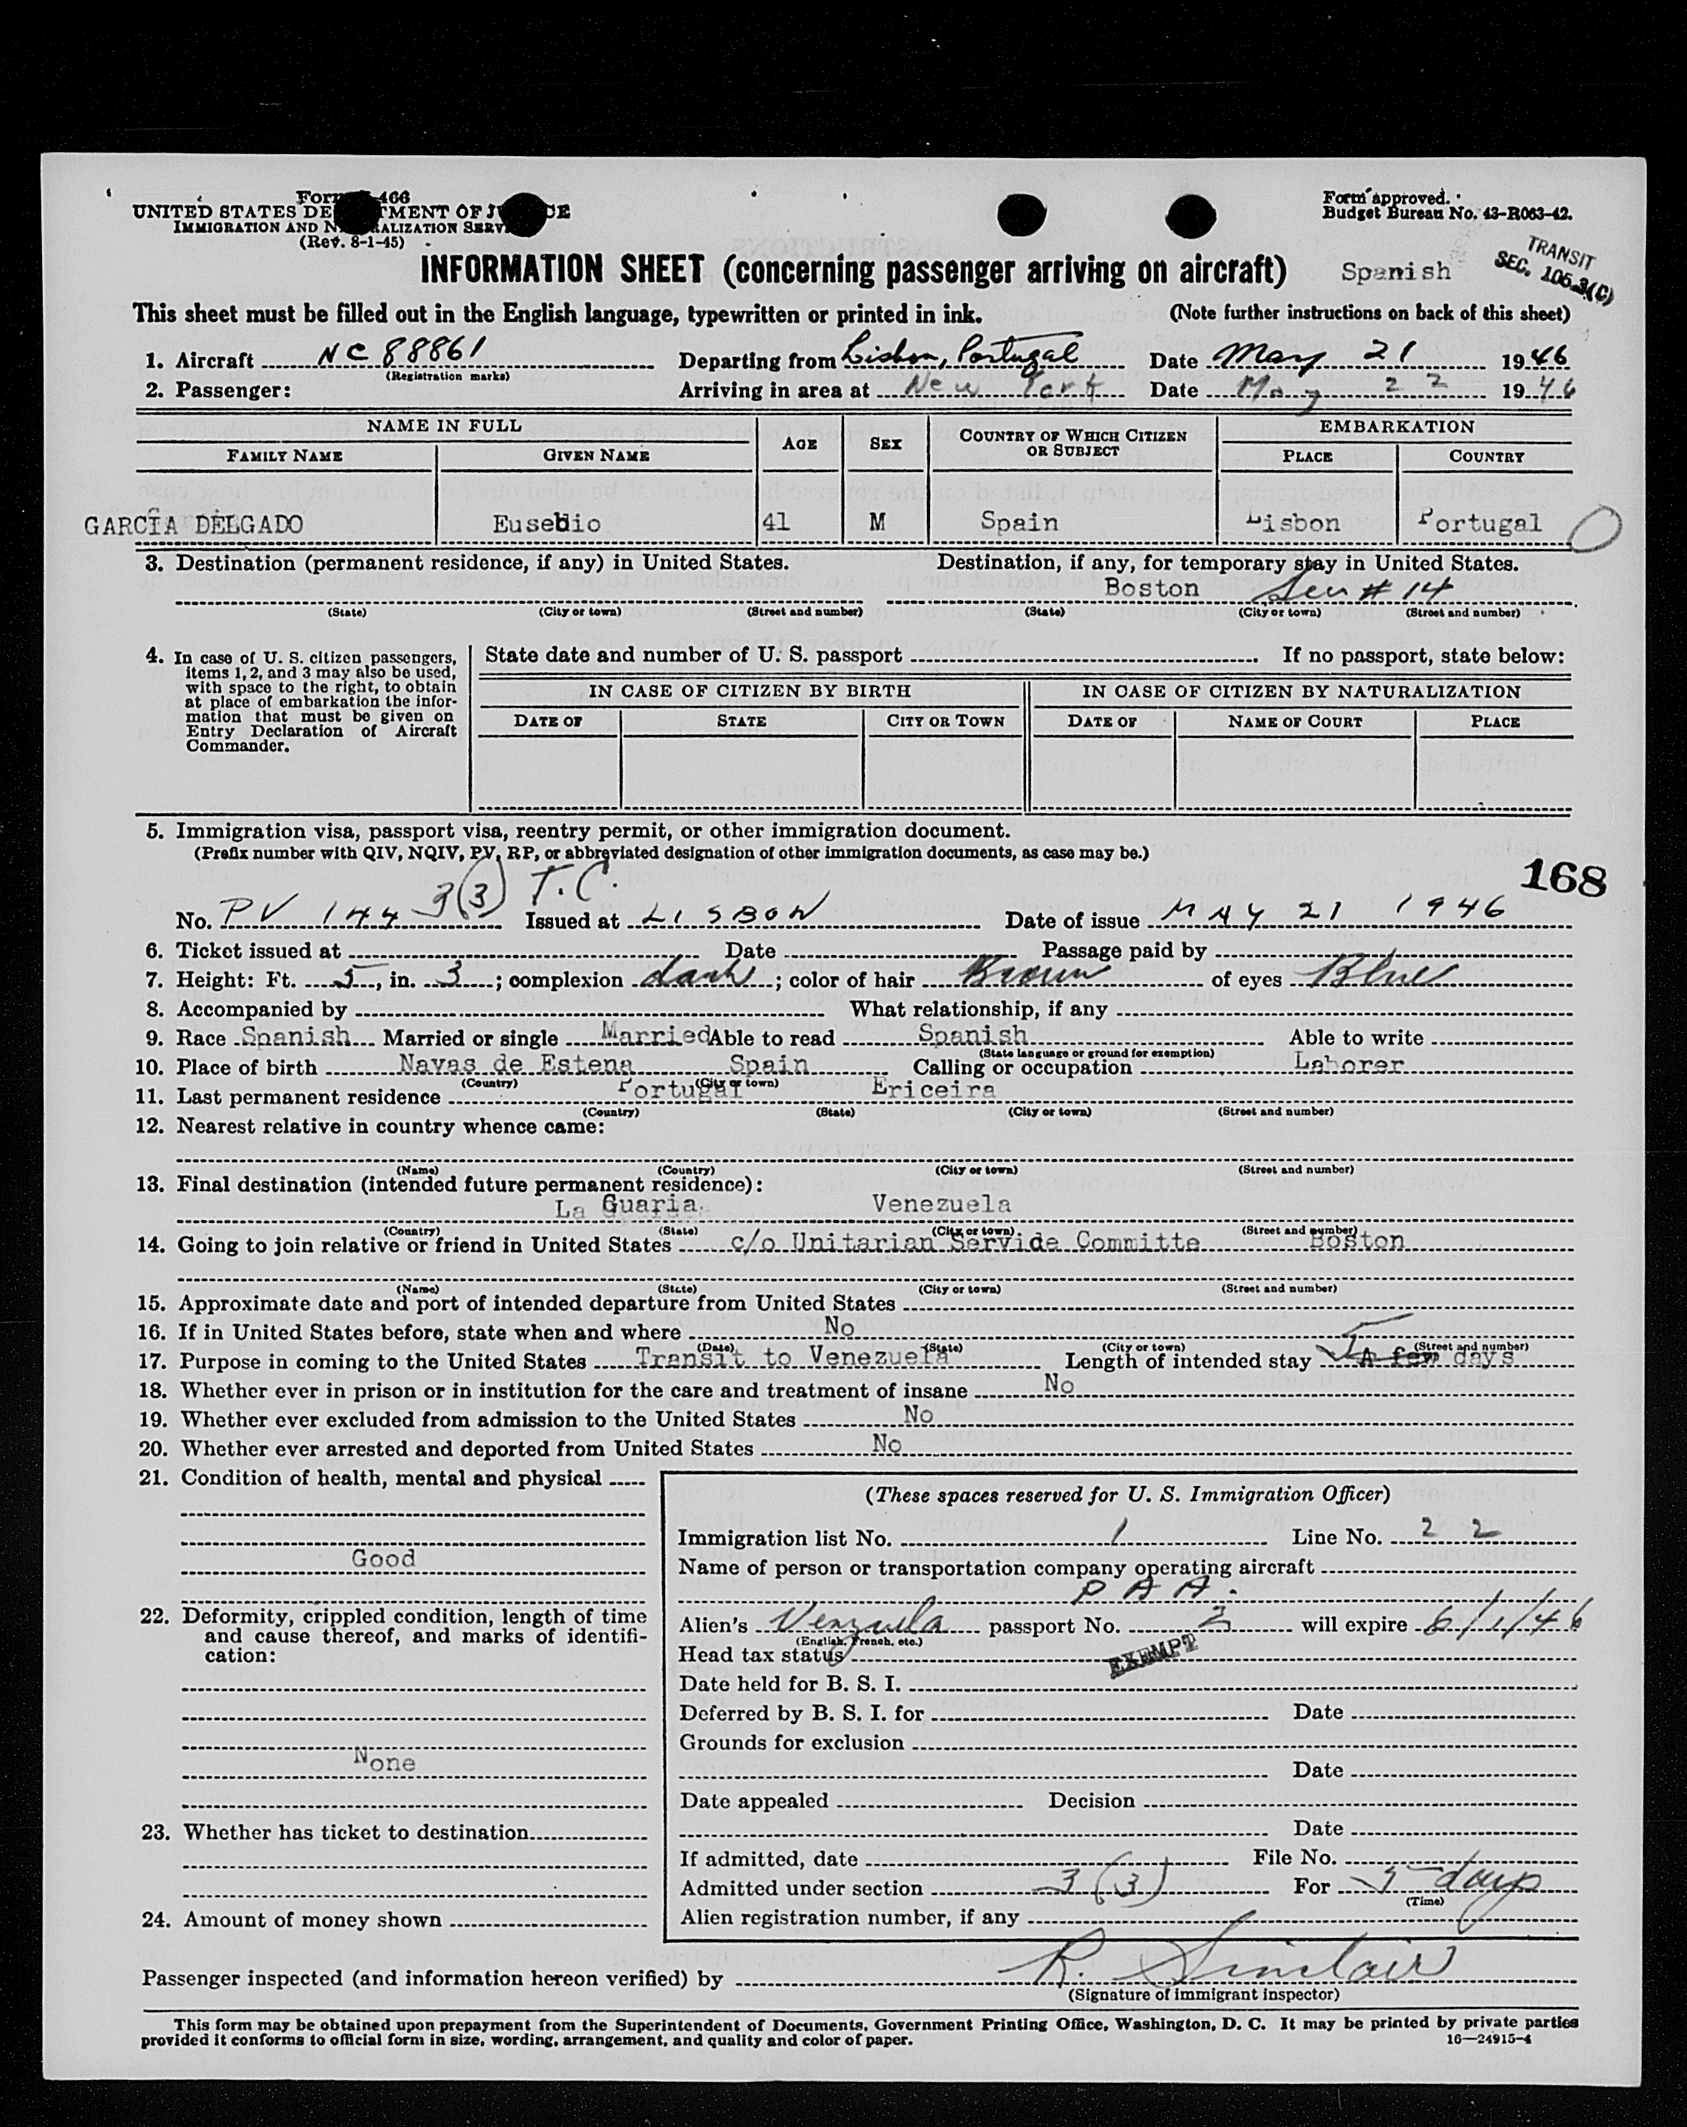 Form 466
UNITED STATES DEPARTMENT OF JUSTICE
IMMIGRATION AND NATURALIZATION SERVICE
(Rev. 8-1-45)
Form approved.
Budget Bureau No. 43-R063-42.
INFORMATION SHEET (concerning passenger arriving on aircraft) Spanish
TRANSIT
SEC. 105.3(C)
This sheet must be filled out in the English language, typewritten or printed in ink. (Note further instructions on back of this sheet)
1. Aircraft NC 88861 Departing from Lisbon, Portugal Date May 21 1946
(Registration marks)
2. Passenger: Arriving in area at New York Date May 22 1946
NAME IN FULL AGE SEX COUNTRY OF WHICH CITIZEN OR SUBJECT EMBARKATION
FAMILY NAME GIVEN NAME PLACE COUNTRY
GARCIA DELGADO Eusebio 41 M Spain Lisbon Portugal
3. Destination (permanent residence, if any) in United States. Destination, if any, for temporary stay in United States.
Boston # 14
(State) (City or town) (Street and number) (State) (City or town) (Street and number)
4. In case of U. S. citizen passengers, items 1, 2, and 3 may also be used, with space to the right, to obtain at place of embarkation the information that must be given on Entry Declaration of Aircraft Commander.
State date and number of U. S. passport If no passport, state below:
IN CASE OF CITIZEN BY BIRTH IN CASE OF CITIZEN BY NATURALIZATION
DATE OF STATE CITY OR TOWN DATE OF NAME OF COURT PLACE
5. Immigration visa, passport visa, reentry permit, or other immigration document.
(Prefix number with QIV, NQIV, PV, RP, or abbreviated designation of other immigration documents, as case may be.)
168
3(3) T.C.
No. PV 144 Issued at LISBON Date of issue MAY 21 1946
6. Ticket issued at Date Passage paid by
7. Height: Ft. 5, in. 3; complexion dark; color of hair Brown of eyes Blue
8. Accompanied by What relationship, if any
9. Race Spanish Married or single Married Able to read Spanish Able to write
(State language or ground for exemption)
10. Place of birth Navas de Estena Spain Calling or occupation Laborer
(Country) (City or town)
11. Last permanent residence Portugal Ericeira
(Country) (State) (City or town) (Street and number)
12. Nearest relative in country whence came:
(Name) (Country) (City or town) (Street and number)
13. Final destination (intended future permanent residence):
La Guaria Venezuela
(Country) (State) (City or town) (Street and number)
14. Going to join relative or friend in United States c/o Unitarian Servide Committe Boston
(Name) (State) (City or town) (Street and number)
15. Approximate date and port of intended departure from United States
16. If in United States before, state when and where No
(Date) (State) (City or town) (Street and number)
17. Purpose in coming to the United States Transit to Venezuela Length of intended stay 5 A few days
18. Whether ever in prison or in institution for the care and treatment of insane No
19. Whether ever excluded from admission to the United States No
20. Whether ever arrested and deported from United States No
21. Condition of health, mental and physical
Good
22. Deformity, crippled condition, length of time and cause thereof, and marks of identification:
None
23. Whether has ticket to destination
24. Amount of money shown
(These spaces reserved for U. S. Immigration Officer)
Immigration list No. 1 Line No. 22
Name of person or transportation company operating aircraft
P A A.
Alien's Venzuela passport No. 2 will expire 6/1/46
(English, French, etc.)
Head tax status EXEMPT
Date held for B. S. I.
Deferred by B. S. I. for Date
Grounds for exclusion
Date
Date appealed Decision
Date
If admitted, date File No.
Admitted under section 3(3) For 5 days
(Time)
Alien registration number, if any
Passenger inspected (and information hereon verified) by R. Sinclair
(Signature of immigrant inspector)
This form may be obtained upon prepayment from the Superintendent of Documents, Government Printing Office, Washington, D. C. It may be printed by private parties
provided it conforms to official form in size, wording, arrangement, and quality and color of paper. 16—24915-4